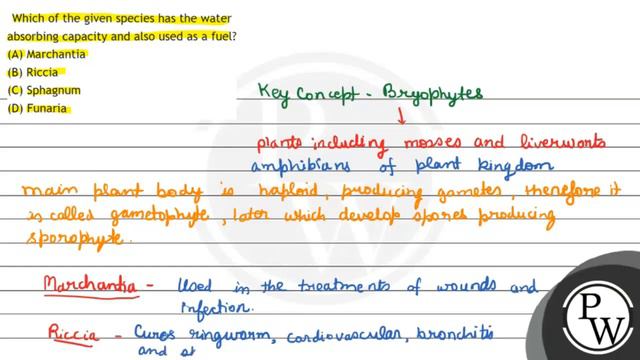 Which of the given species has the water
absorbing capacity and also used as a fuel?
(A) Marchantia
(B) Riccia
(C) Sphagnum
(D) Funaria
Key Concept - Bryophytes
plants including mosses and liverworts
amphibians of plant kingdom
main plant body is haploid, producing gametes, therefore it
is called gametophyte, later which develop spores producing
sporophyte.
Marchantia - Used in the treatments of wounds and
infection.
Riccia - Cures ringworm, cardiovascular, bronchitis
and
PW